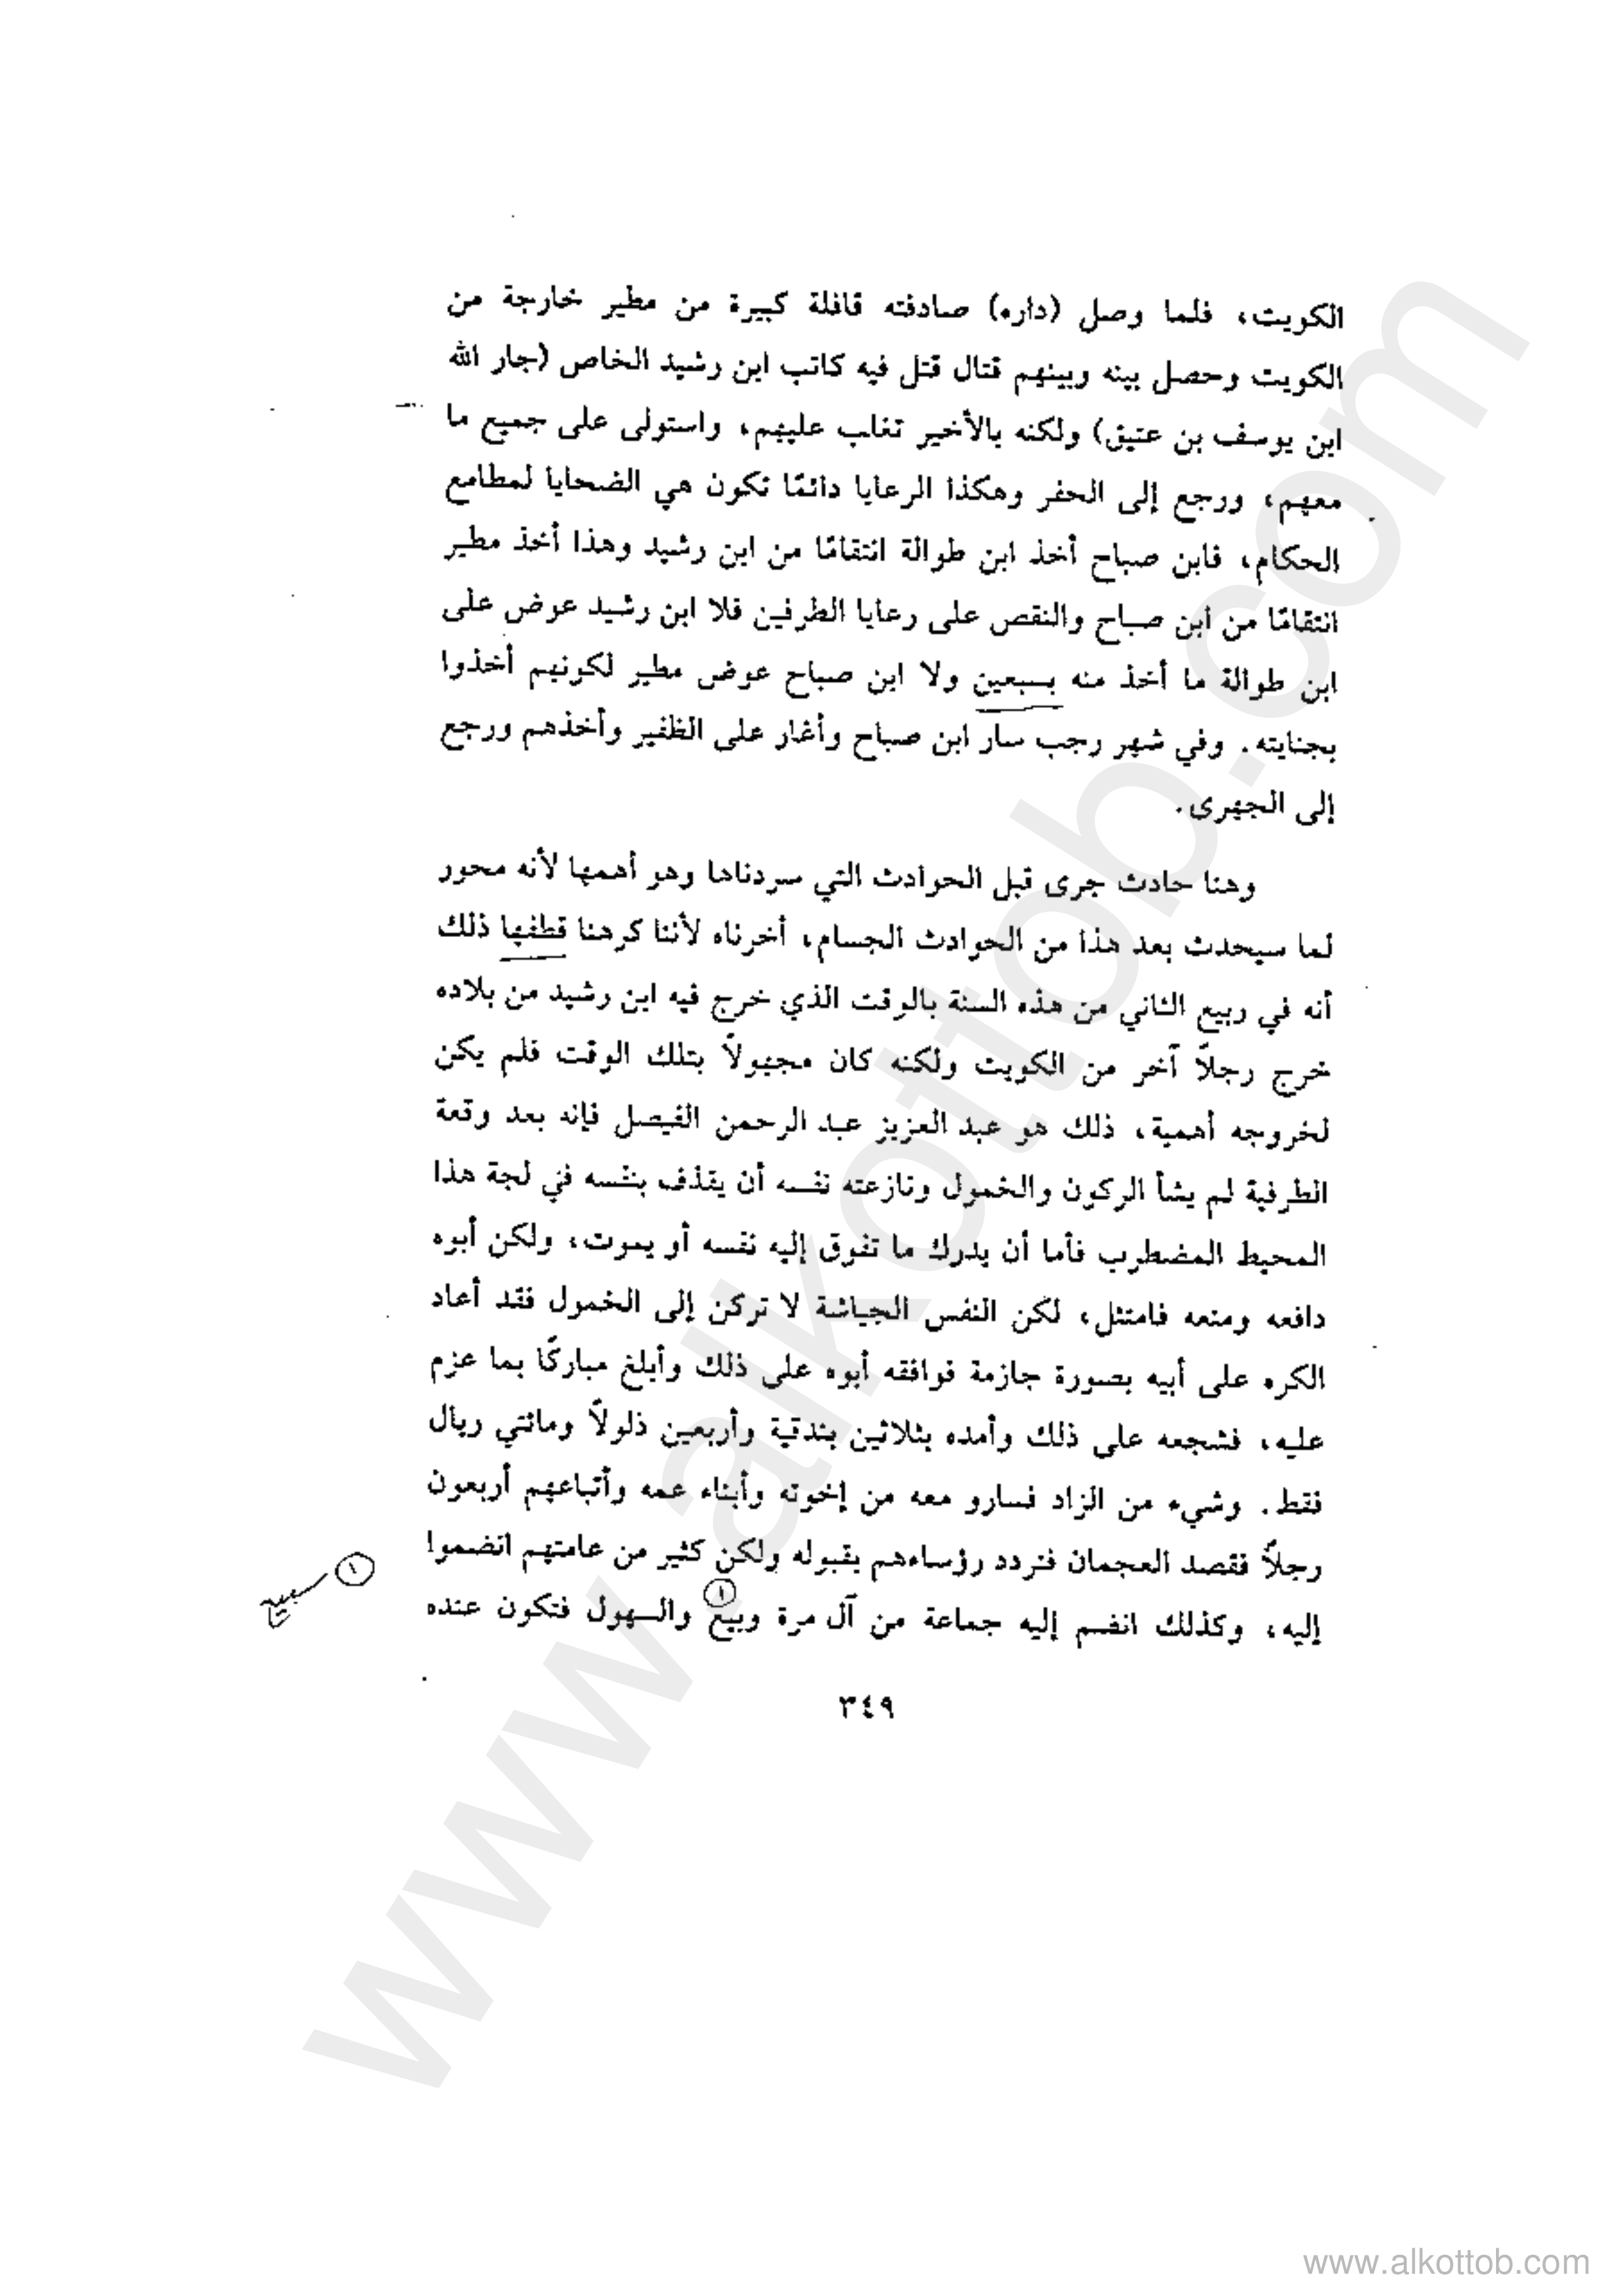 الكويت، فلما وصل (داره) صادفته قافلة كبيرة من مطير خارجة من
الكويت وحصل بينه وبينهم قتال قتل فيه كاتب ابن رشيد الخاص (جار الله
ابن يوسف بن عتيق) ولكنه بالأخير تغلب عليهم، واستولى على جميع ما
معهم، ورجع إلى الحفر وهكذا الرعايا دائمًا تكون هي الضحايا لمطامع
الحكام، فابن صباح أخذ ابن طوالة انتقامًا من ابن رشيد وهذا أخذ مطير
انتقامًا من ابن صباح والنقص على رعايا الطرفين فلا ابن رشيد عوض على
ابن طوالة ما أخذ منه بسبعين ولا ابن صباح عوض مطير لكونهم أخذوا
بجنايته. وفي شهر رجب سار ابن صباح وأغار على الظفير وأخذهم ورجع
إلى الجهرى.
وهنا حادث جرى قبل الحوادث التي سردناها وهو أهمها لأنه محور
لما سيحدث بعد هذا من الحوادث الجسام، أخرناه لأننا كرهنا قطفها ذلك
أنه في ربيع الثاني من هذه السنة بالوقت الذي خرج فيه ابن رشيد من بلاده
خرج رجلاً آخر من الكويت ولكنه كان مجهولاً بتلك الوقت فلم يكن
لخروجه أهمية، ذلك هو عبد العزيز عبد الرحمن الفيصل فإنه بعد وقعة
الطرفية لم يشأ الركون والخمول ونازعته نفسه أن يقذف بنفسه في لجة هذا
المحيط المضطرب فأما أن يدرك ما تفوق إليه نفسه أو يموت، ولكن أبوه
دافعه ومنعه فامتثل، لكن النفس الجياشة لا تركن إلى الخمول فقد أعاد
الكره على أبيه بصورة جازمة فوافقه أبوه على ذلك وأبلغ مباركًا بما عزم
عليه، فشجعه على ذلك وأمده بثلاثين بندقية وأربعين ذلولاً ومائتي ريال
فقط. وشيء من الزاد فسارو معه من إخوته وأبناء عمه وأتباعهم أربعون
رجلاً فقصد العجمان فتردد رؤساءهم بقبوله ولكن كثير من عامتهم انضموا
① سبيع
إليه، وكذلك انضم إليه جماعة من آل مرة وبيع ① والسهول فتكون عنده
٣٤٩
www.alkottob.com
www.alkottob.com